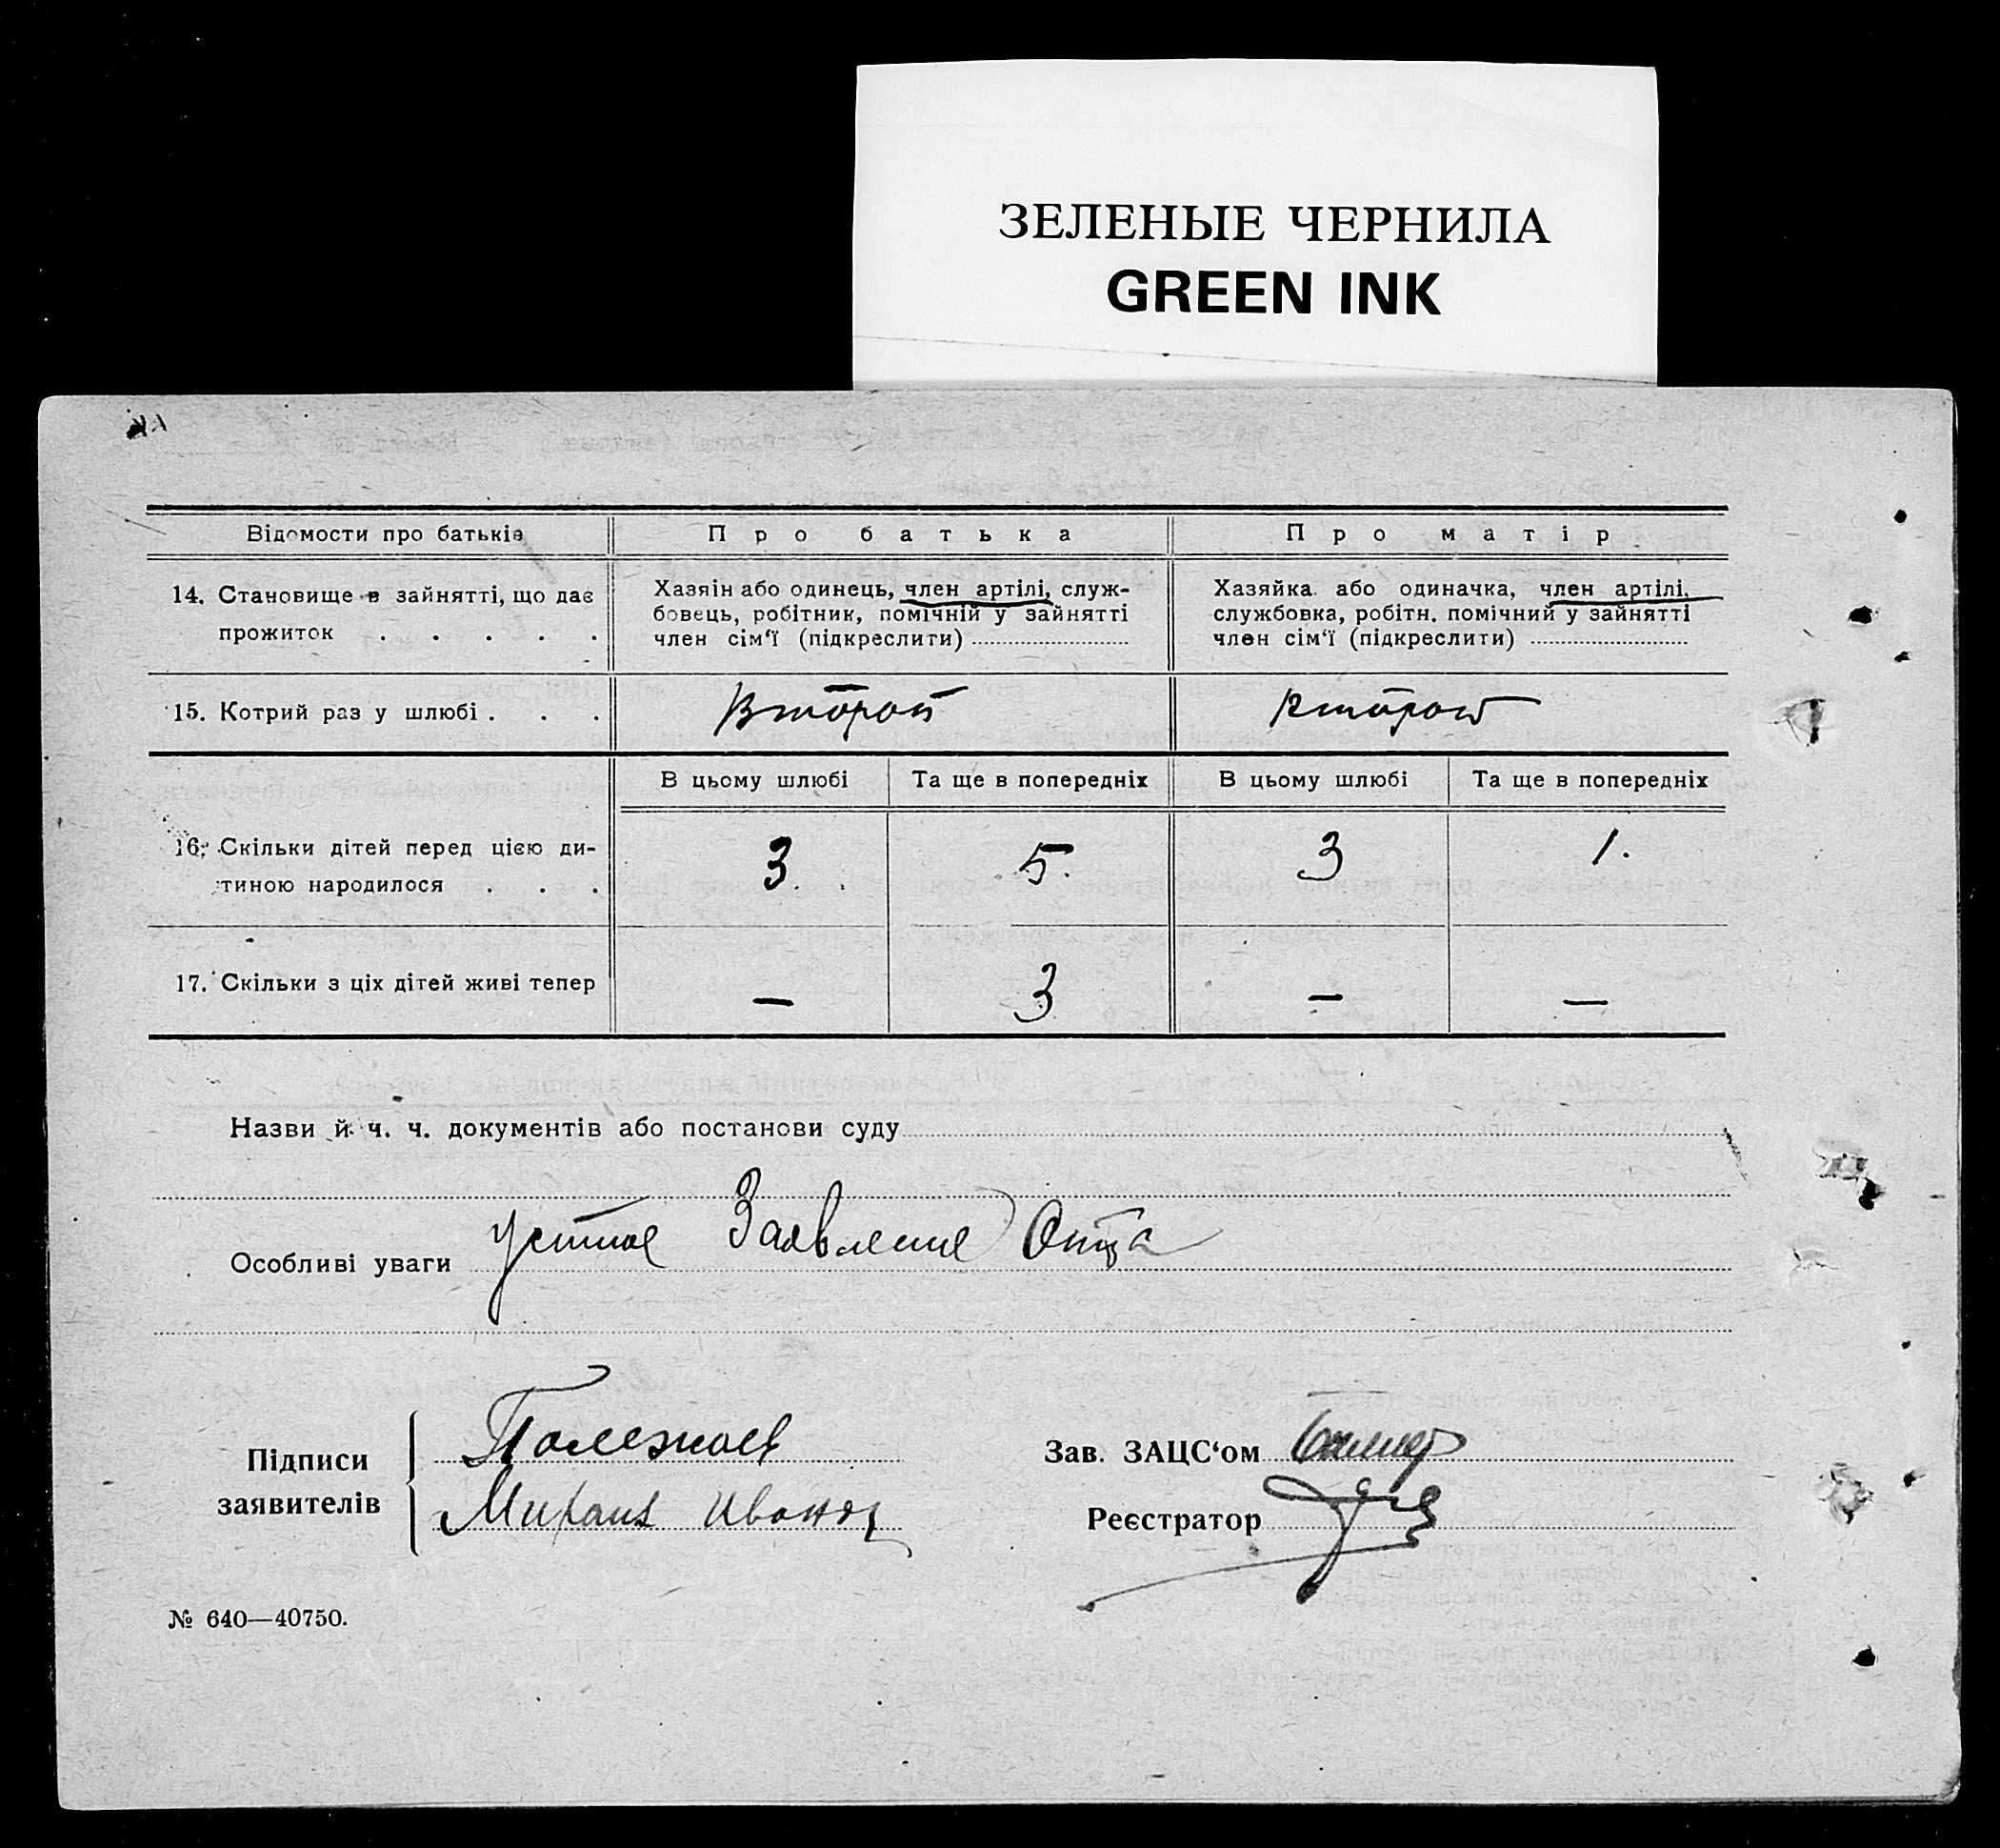 ЗЕЛЕНЫЕ ЧЕРНИЛА
GREEN INK
Відомости про батьків
Про батька
Про матір
14. Становище в зайнятті, що дає
прожиток . . . . .
Хазяін або одинець, член артілі, служ-
бовець, робітник, помічній у зайнятті
член сім‘ї (підкреслити)
Хазяйка або одиначка, член артілі,
службовка, робітн. помічний у зайнятті
член сім‘ї (підкреслити)
15. Котрий раз у шлюбі . . .
Второй
второй
В цьому шлюбі
Та ще в попередніх
В цьому шлюбі
Та ще в попередніх
16. Скільки дітей перед цією ди-
тиною народилося . . .
3.
5.
3
1.
17. Скільки з ціх дітей живі тепер
—
3
—
—
Назви й ч. ч. документів або постанови суду
Особливі уваги Устное Заявление Отца
Підписи
заявителів
Полежаев
Михаил Иванов
Зав. ЗАЦС‘ом
Реєстратор
№ 640—40750.